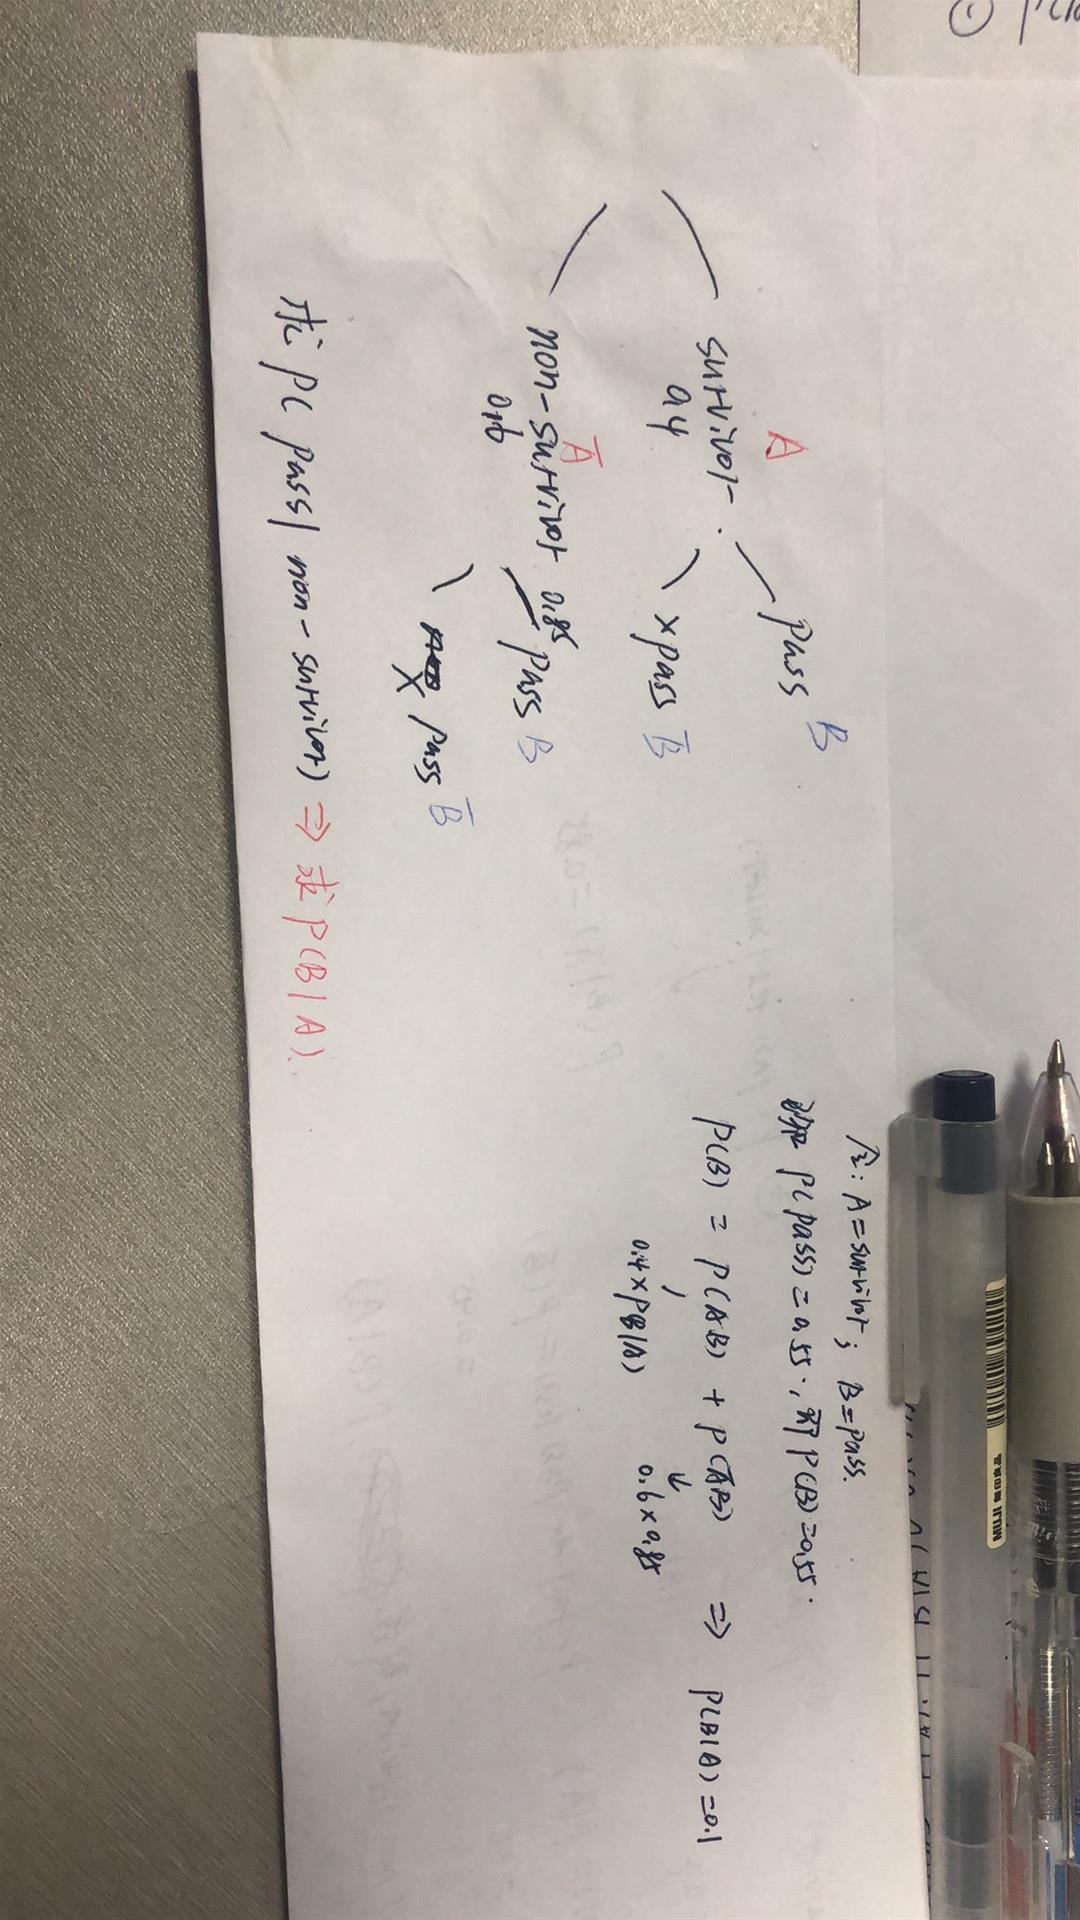 A
survivor
0.4
pass B
x pass B̅
A̅
non-survivor
0.6
0.85
pass B
X pass B̅
求 P( pass | non-survivor) ⇒ 求 P(B|A).
令: A=survivor; B=pass.
P(pass)=0.55, 即 P(B)=0.55.
P(B) = P(AB) + P(A̅B) ⇒ P(B|A)=0.1
0.4×P(B|A) 0.6×0.85
①
MUJI